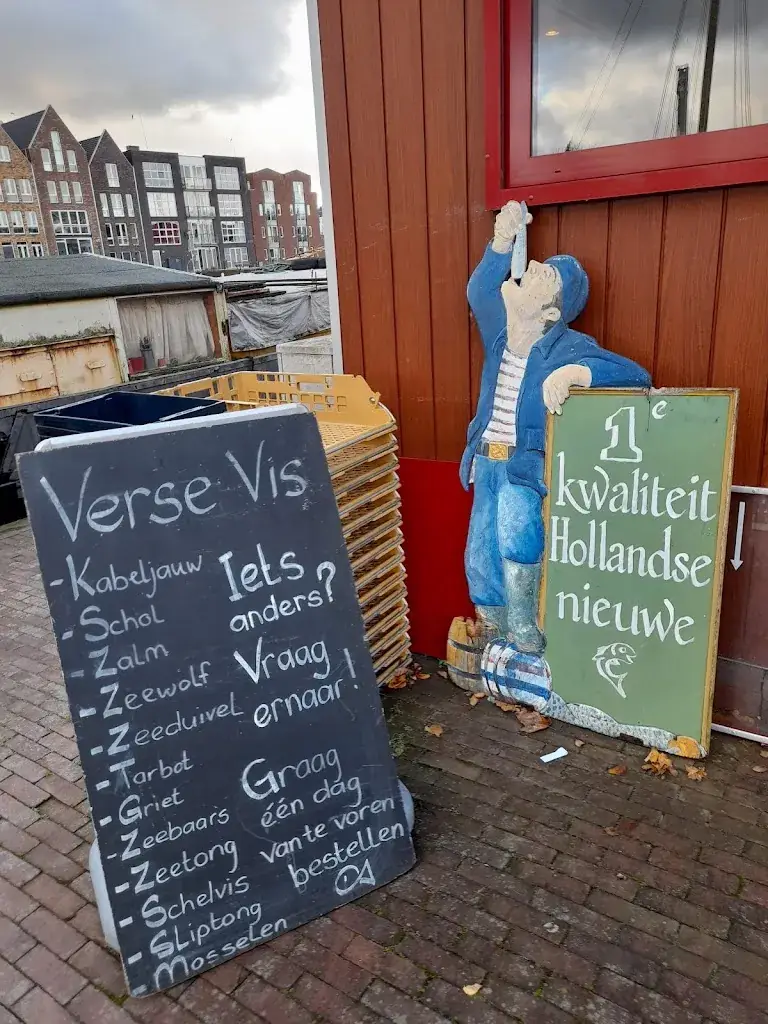 Verse Vis
- Kabeljauw
- Schol
- Zalm
- Zeewolf
- Zeeduivel
- Tarbot
- Griet
- Zeebaars
- Zeetong
- Schelvis
- Sliptong
- Mosselen
Iets
anders?
Vraag
ernaar!
Graag
één dag
van te voren
bestellen
1e
kwaliteit
Hollandse
nieuwe